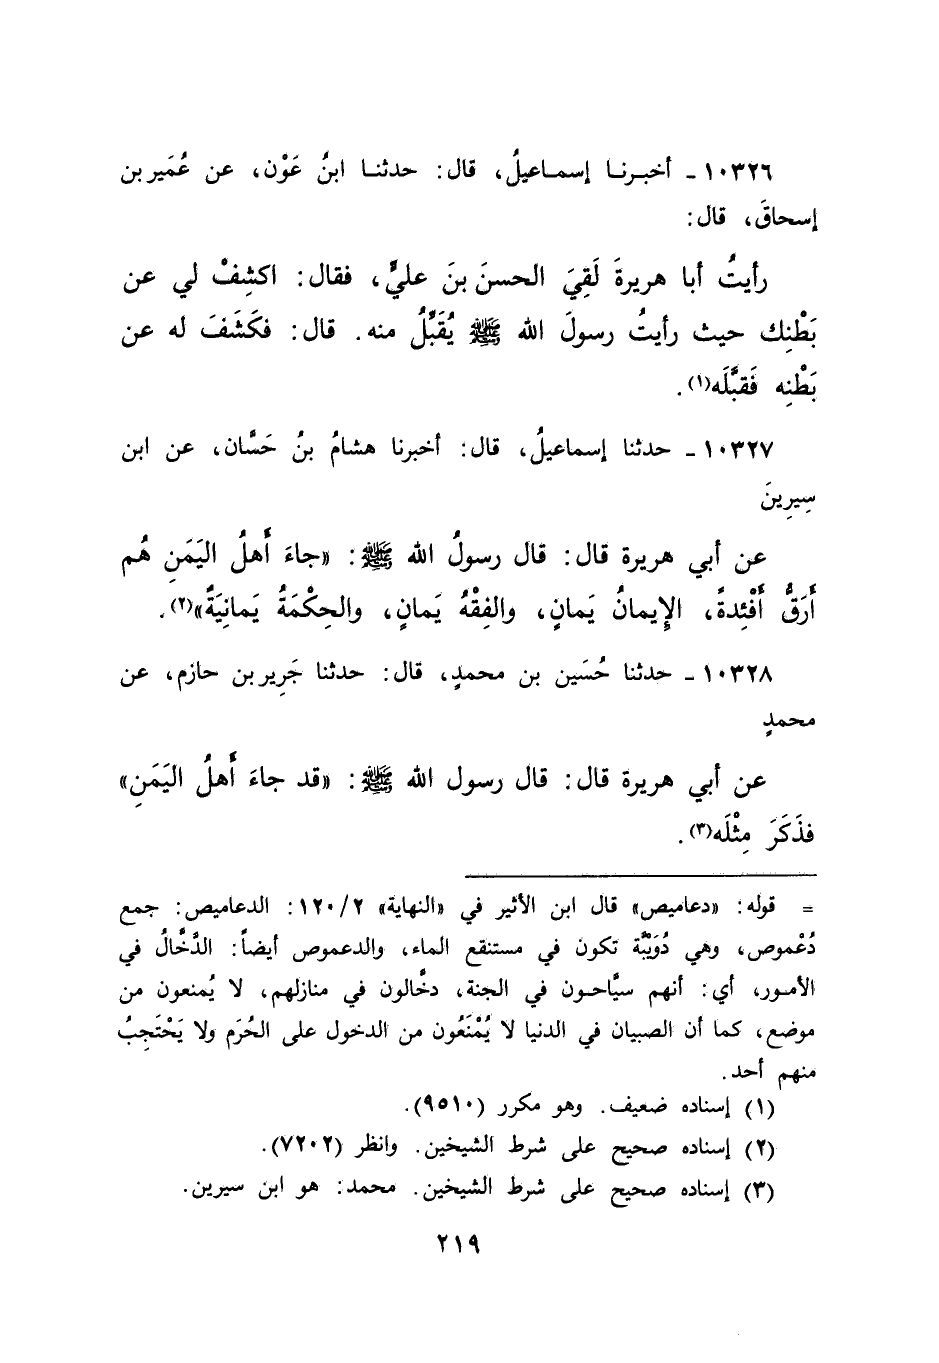 ١٠٣٢٦ ـ أخبرنا إسماعيلُ، قال: حدثنا ابنُ عَوْن، عن عُمَير بن
إسحاقَ، قال:
رأيتُ أبا هريرةَ لَقِيَ الحسنَ بنَ عليٍّ، فقال: اكشِفْ لي عن
بَطْنِك حيث رأيتُ رسولَ الله ﷺ يُقَبِّلُ منه. قال: فكَشَفَ له عن
بَطْنِه فَقبَّلَه(١).
١٠٣٢٧ ـ حدثنا إسماعيلُ، قال: أخبرنا هشامُ بنُ حَسَّان، عن ابن
سِيرِينَ
عن أبي هريرة قال: قال رسولُ الله ﷺ: «جاءَ أَهلُ اليَمَنِ هُم
أَرَقُّ أَفْئِدةً، الإِيمانُ يَمانٍ، والفِقْهُ يَمانٍ، والحِكْمَةُ يَمانِيَةٌ»(٢).
١٠٣٢٨ ـ حدثنا حُسَين بن محمدٍ، قال: حدثنا جَرِير بن حازم، عن
محمدٍ
عن أبي هريرة قال: قال رسول الله ﷺ: «قد جاءَ أَهلُ اليَمَنِ»
فذَكَرَ مِثْلَه(٣).
= قوله: «دعاميص» قال ابن الأثير في «النهاية» ١٢٠/٢: الدعاميص: جمع
دُعْموص، وهي دُوَيْبَّة تكون في مستنقع الماء، والدعموص أيضاً: الدَّخَّالُ في
الأمور، أي: أنهم سيَّاحون في الجنة، دخَّالون في منازلهم، لا يُمنعون من
موضع، كما أن الصبيان في الدنيا لا يُمْنَعُون من الدخول على الحُرَم ولا يَحْتَجِبُ
منهم أحد.
(١) إسناده ضعيف. وهو مكرر (٩٥١٠).
(٢) إسناده صحيح على شرط الشيخين. وانظر (٧٢٠٢).
(٣) إسناده صحيح على شرط الشيخين. محمد: هو ابن سيرين.
٢١٩